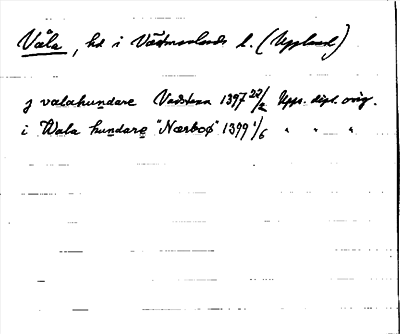 Våla, hd i Västmanlands l. (Uppland)
j valahundare Vadstena 1397 22/2 Upps. dipl. orig.
i Wala hundare "Nærboø" 1399 1/6 " " "